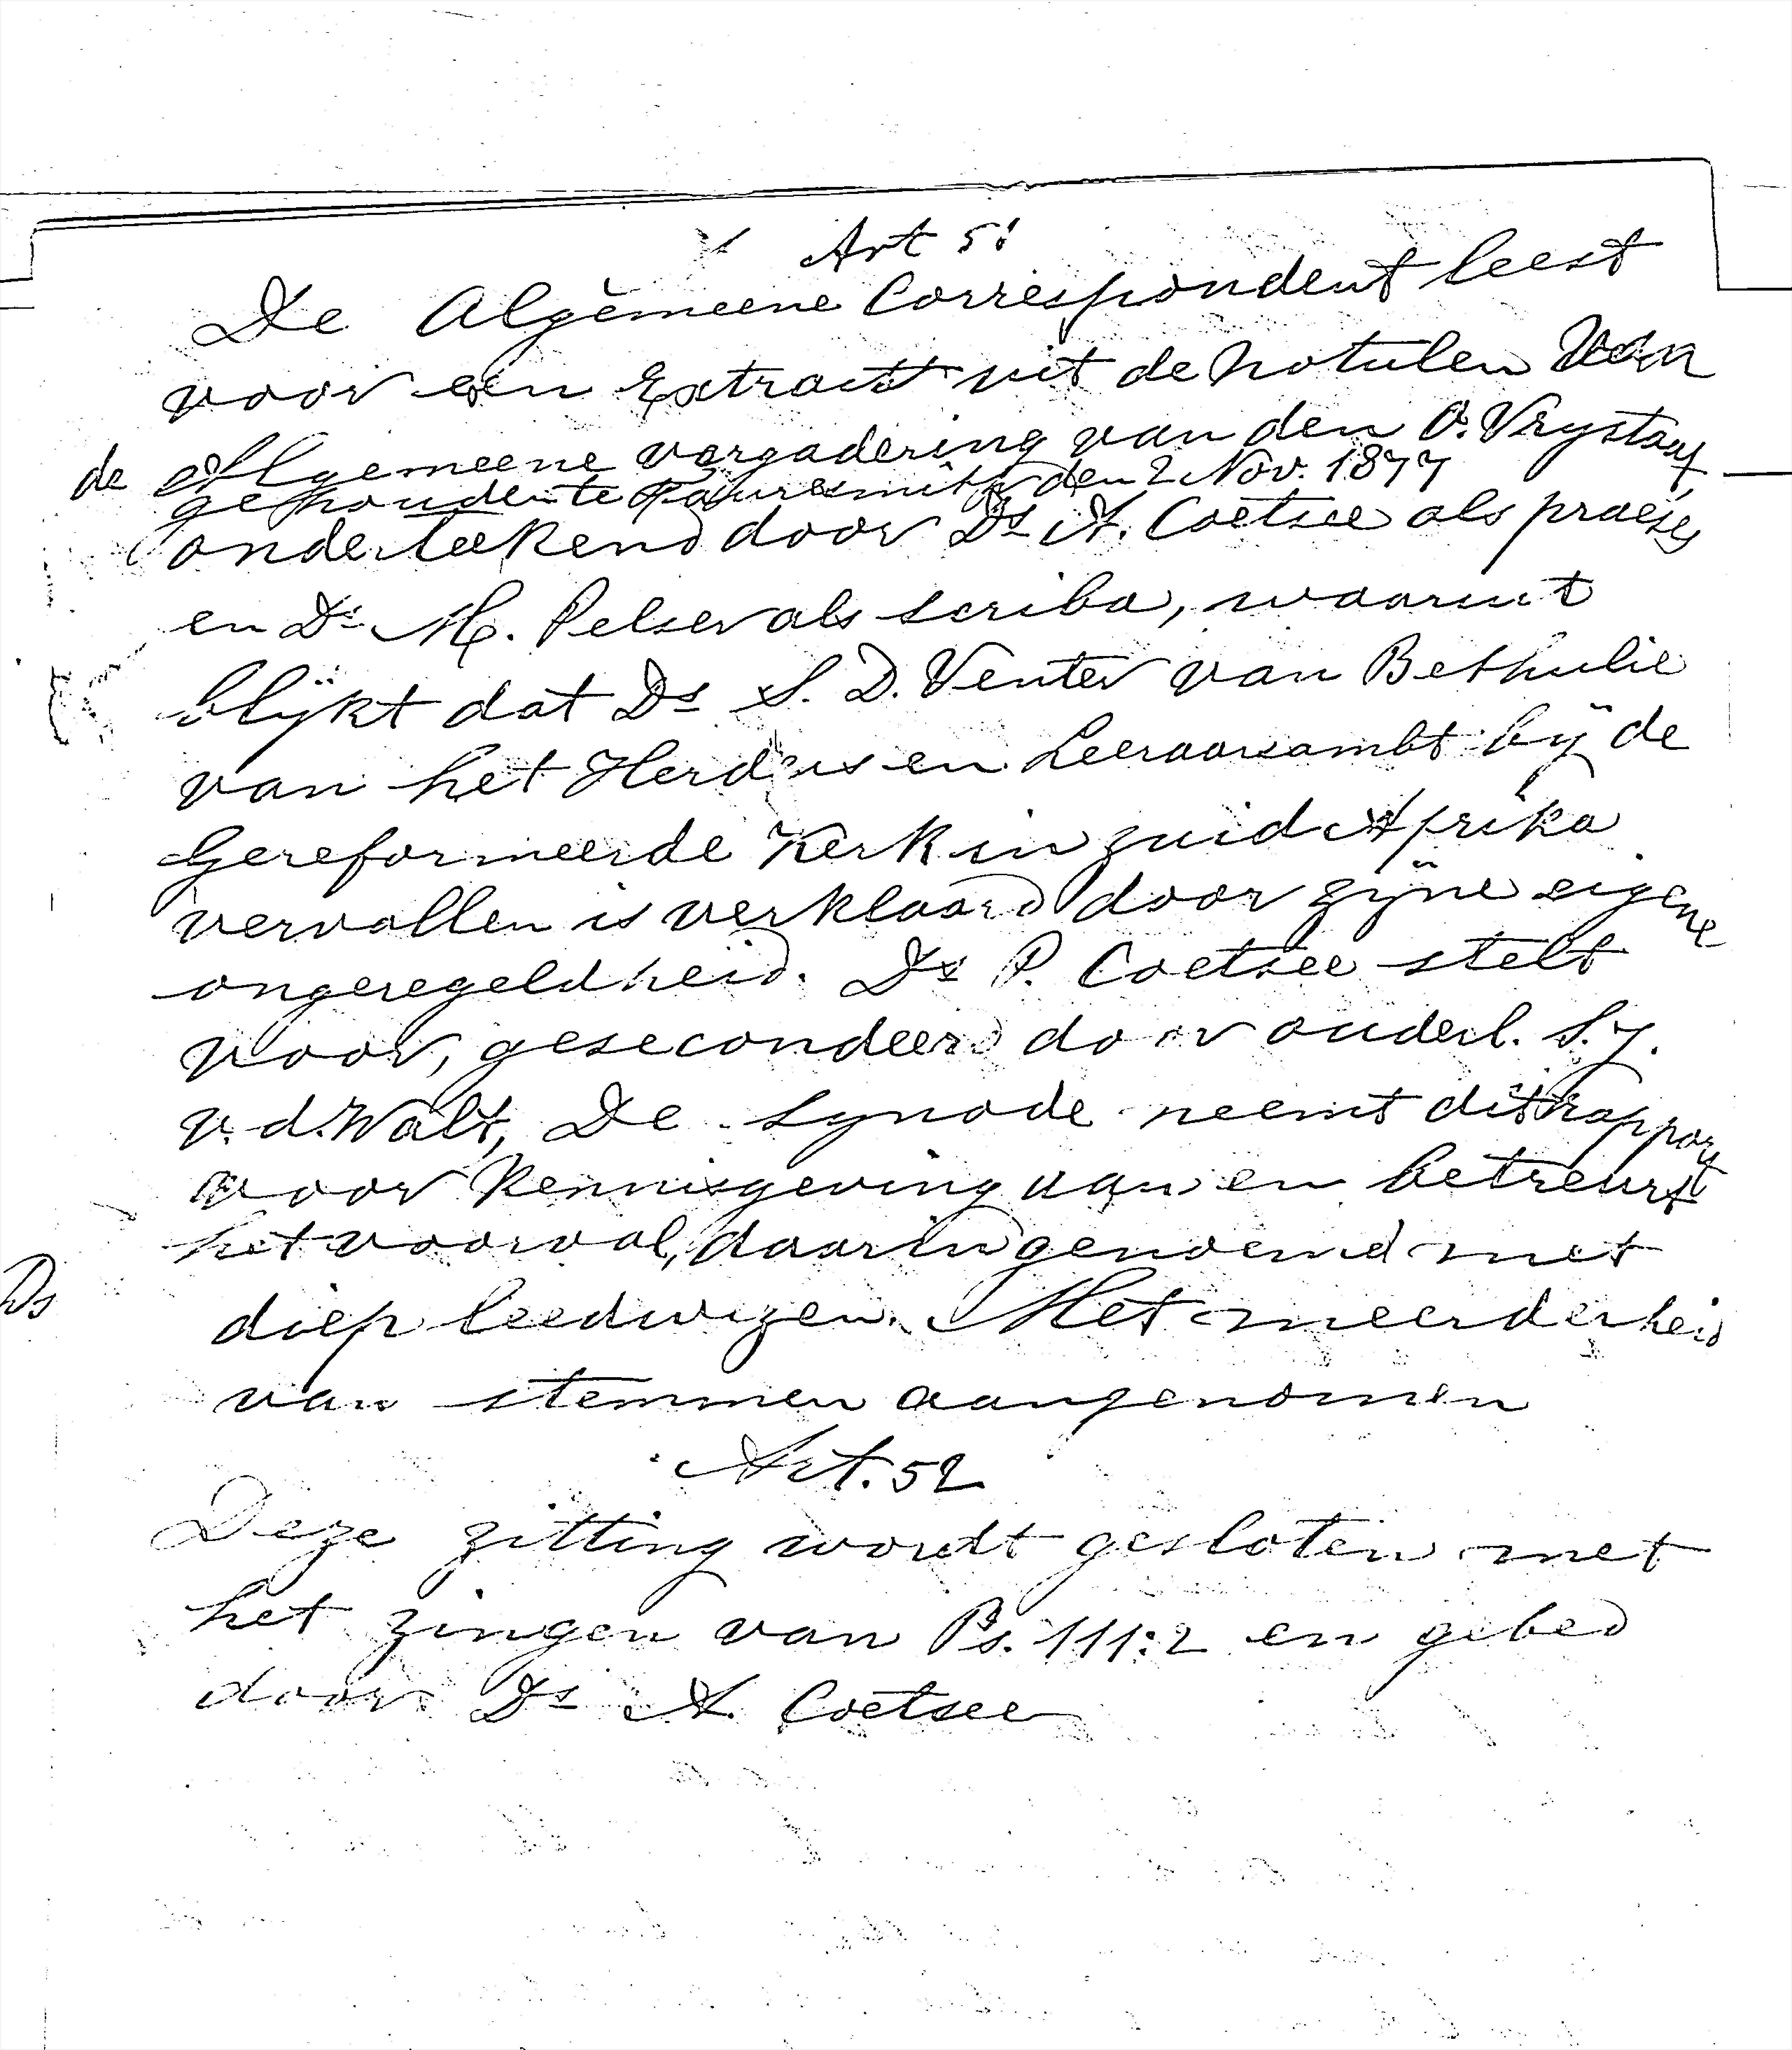 Art 51
De Algemeene Correspondent leest
voor een Extract uit de notulen van
de Algemeene vergadering van den O. Vrystaat,
gehouden te Fauresmith den 2 Nov. 1877
onderteekend door Ds A. Coetsee als praeses
en Ds M. Pelser als scriba, waaruit
blijkt dat Ds S. D. Venter van Bethulie
van het Herders en Leeraarsambt bij de
Gereformeerde Kerk in zuid Afrika
vervallen is verklaard door zijne eigene
ongeregeldheid. Ds P. Coetsee stelt
voor, gesecondeerd door ouderl. S. J.
v. d. Walt, De synode neemt dit rapport
voor kennisgeving aan en betreurt
het voorval, daarin genoemd met
Ds
diep leedwezen. Met meerderheid
van stemmen aangenomen
Art. 52
Deze zitting wordt gesloten met
het zingen van Ps. 111:2 en gebed
door Ds A. Coetsee